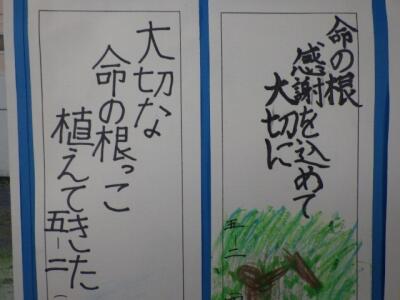 命の根
感謝を込めて
大切に
五-二
大切な
命の根っこ
植えてきた
五-二